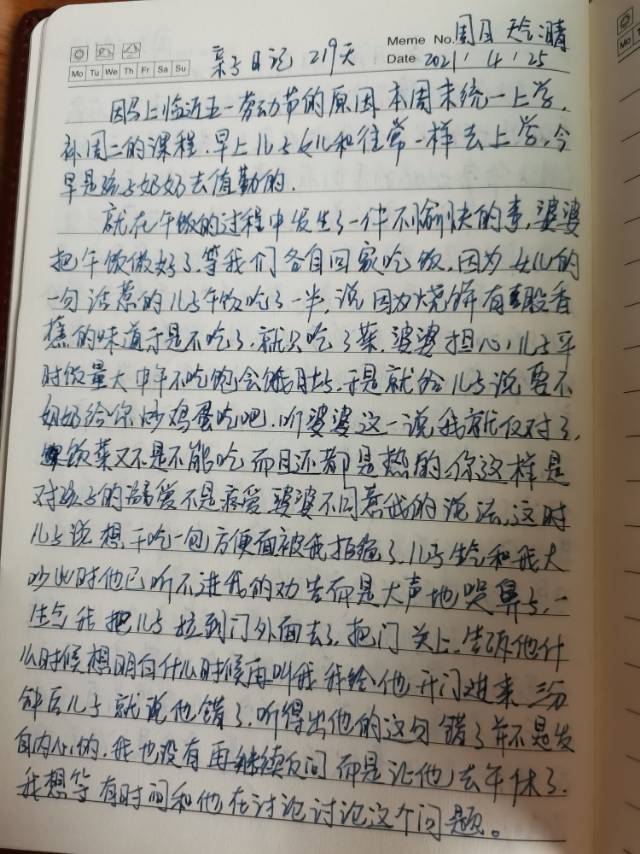 Meme No. 周日 天气晴
Mo Tu We Th Fr Sa Su
亲子日记 219天
Date 2021/4/25
因马上临近五一劳动节的原因,本周末统一上学,
补周二的课程.早上儿子女儿和往常一样去上学,今
早是孩子奶奶去值勤的.
就在午饭的过程中发生了一件不愉快的事,婆婆
把午饭做好了.等我们各自回家吃饭.因为女儿的
一句话惹的儿子午饭吃了一半,说因为烧饼有股香
蕉的味道于是不吃了,就只吃了菜.婆婆担心儿子平
时饭量大中午不吃饱会饿肚子.于是就给儿子说要不
奶奶给你炒鸡蛋吃吧.听婆婆这一说我就反对了,
饭菜又不是不能吃而且还都是热的,你这样是
对孩子的溺爱不是疼爱.婆婆不同意我的说法.这时
儿子说想干吃一包方便面被我拒绝了.儿子生气和我大
吵此时他已听不进我的劝告而是大声地哭鼻子,一
生气我把儿子拉到门外面去了.把门关上.告诉他什
么时候想明白什么时候再叫我.我给他开门进来.三分
钟后儿子就说他错了.听得出他的这句错了并不是发
自内心的.我也没有再继续反问而是让他去午休了.
我想等有时间和他在讨论讨论这个问题。